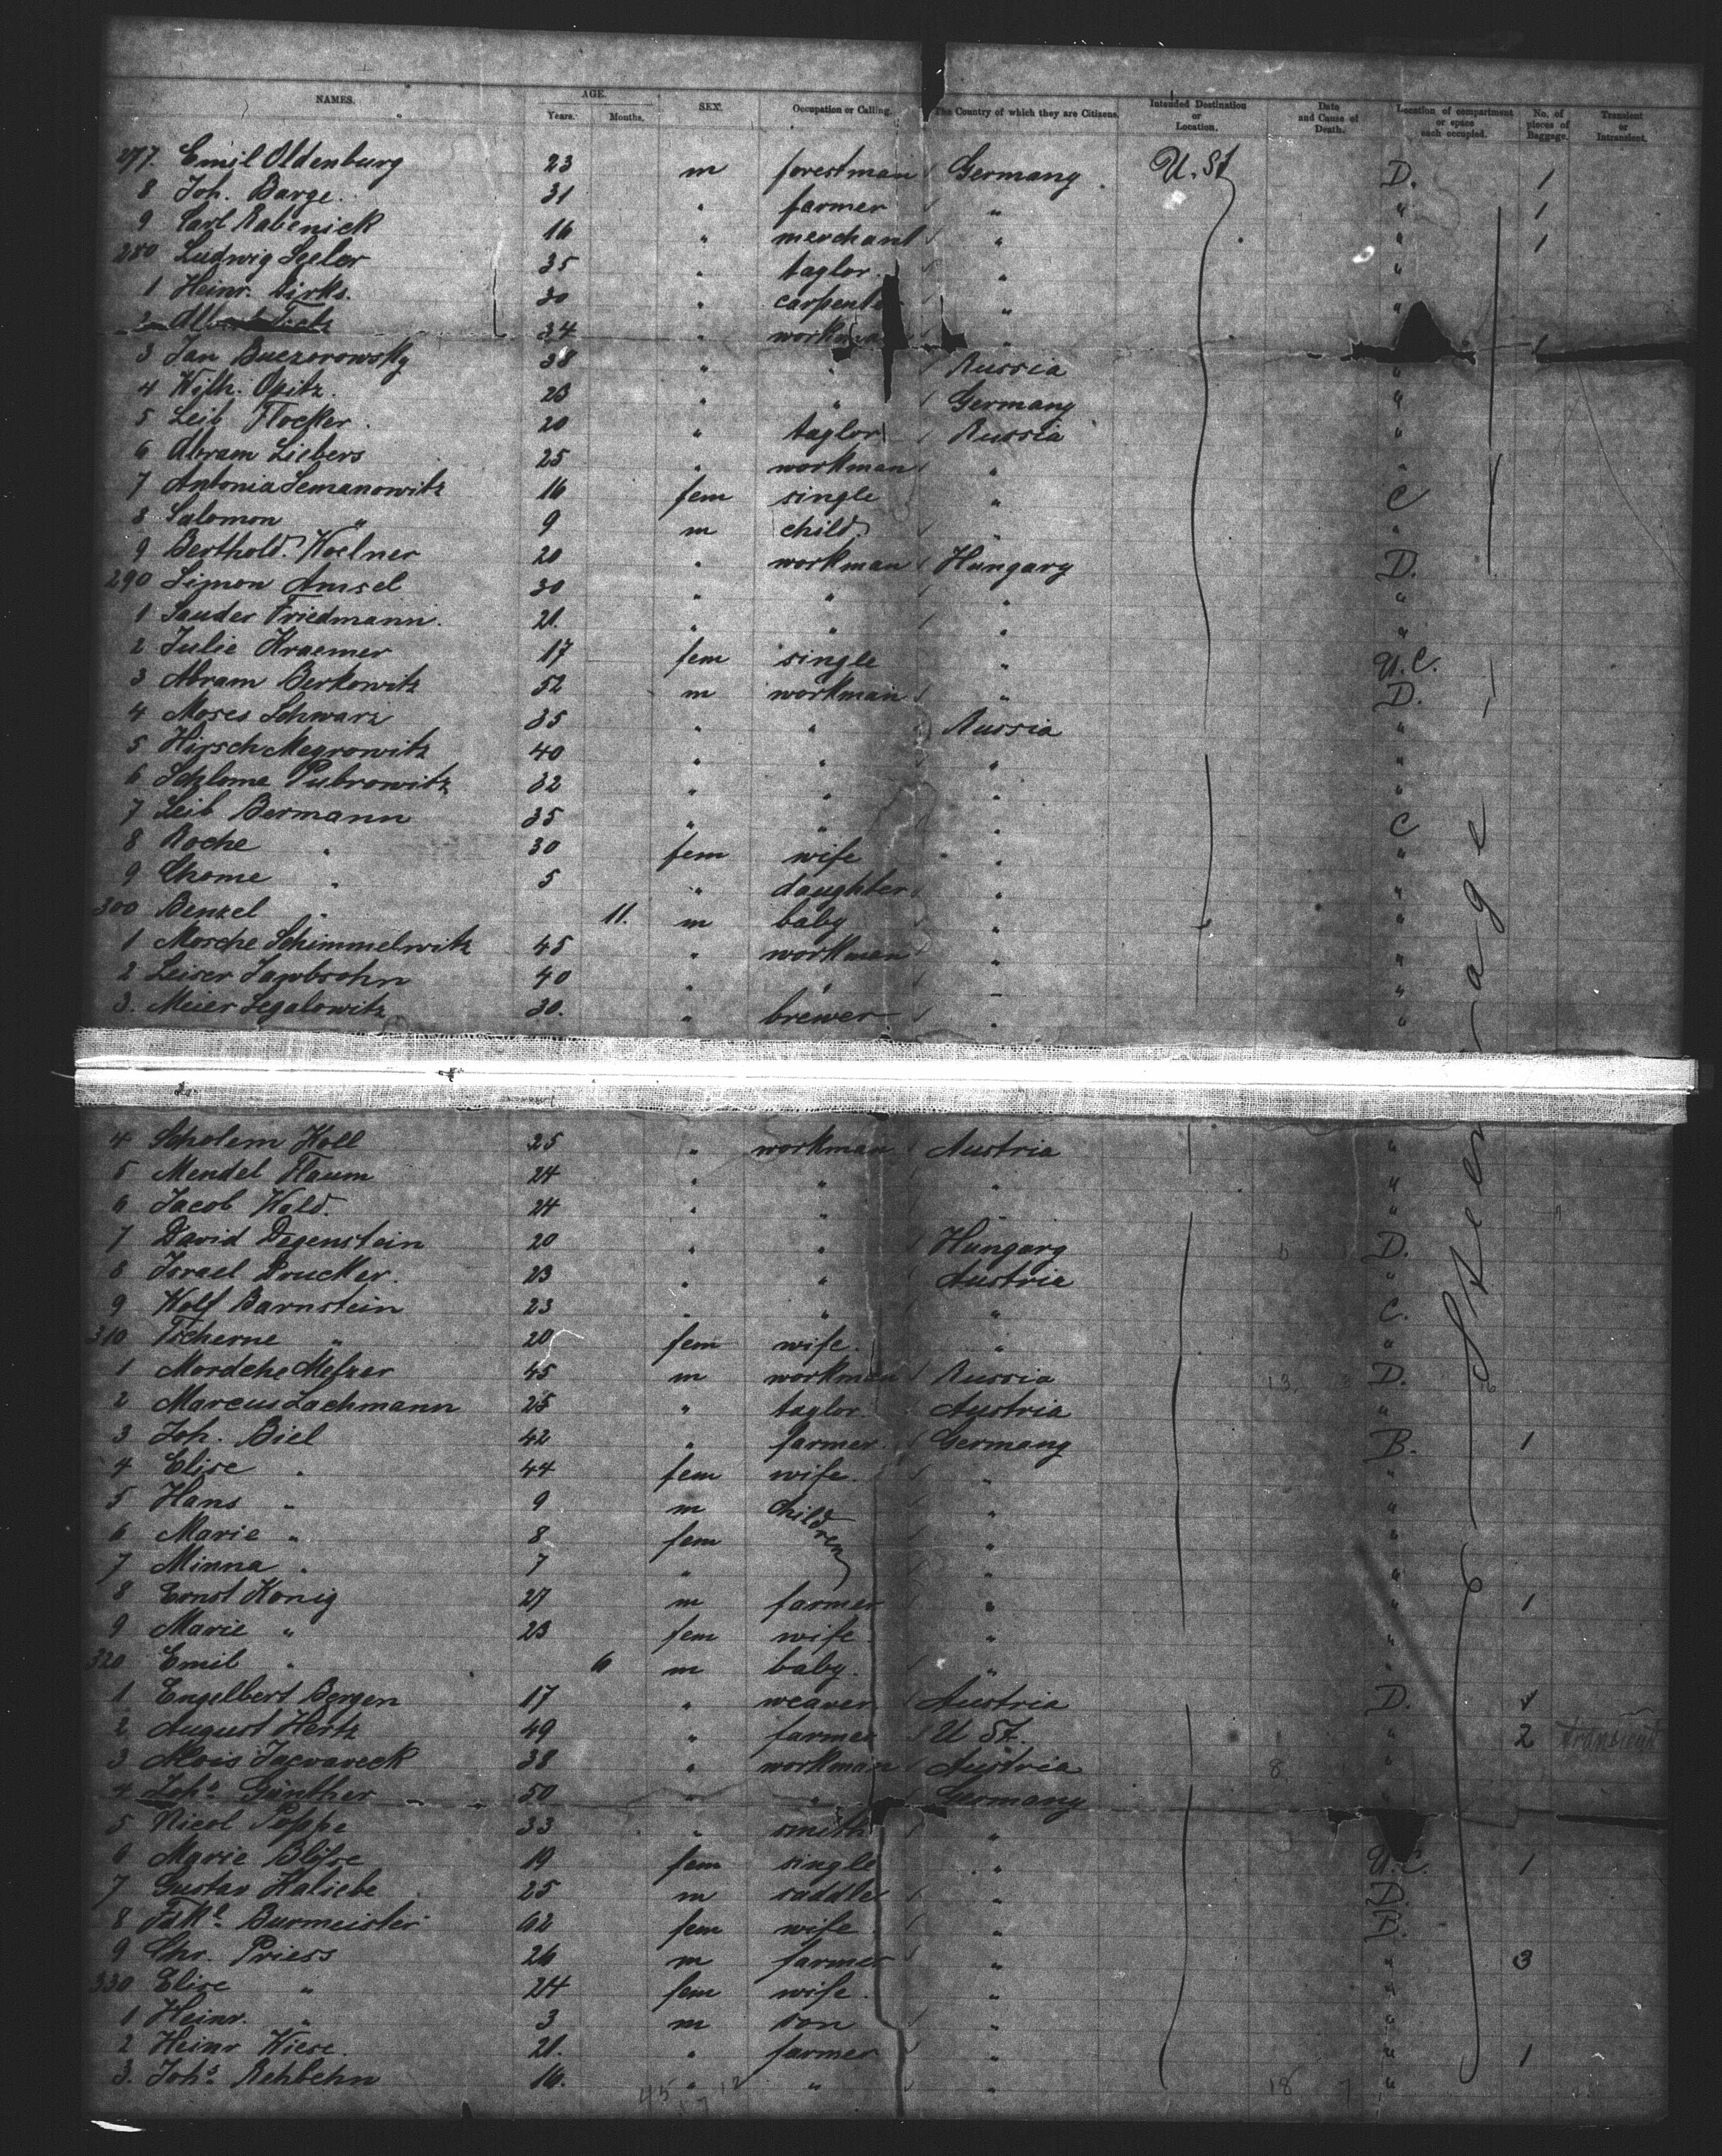 NAMES. AGE. Years. Months. SEX. Occupation or Calling. The Country of which they are Citizens. Intended Destination or Location. Date and Cause of Death. Location of compartment or space each occupied. No. of pieces of Baggage. Transient or Intransient.
277. Emil Oldenburg 23 m forestman Germany U. St D. 1
8 Joh. Barge. 31 " farmer " " 1
9 Carl Rabenick 16 " merchant " " 1
280 Ludwig Seeler 35 " taylor. " "
1 Heinr. Dirks. 30 " carpenter " "
2 34 " workman " 1
3 Jan Buczorowsky 38 " " Russia "
4 Wilh. Opitz. 23 " " Germany "
5 Leib Flocker. 20 " taylor Russia "
6 Abram Liebers 25 " workman " "
7 Antonia Semanowitz 16 fem single " C
8 Salomon " 9 m child " "
9 Berthold Koelner 20 " workman Hungary D.
290 Simon Amsel 30 " " " "
1 Sander Friedmann. 21. " " " "
2 Julie Kraemer 17 fem single " U.C.
3 Abram Berkowitz 52 m workman " D.
4 Moses Schwarz 35 " " Russia "
5 Hirsch Megrowitz 40 " " " "
6 Schlome Pubrowitz 32 " " " "
7 Leib Bermann 35 " " " C
8 Roche " 30 fem wife " "
9 Chome " 5 " daughter " "
300 Benzel " 11. m baby " "
1 Mosche Schimmelwitz 45 " workman " "
2 Leiser Jacobsohn 40 " " " "
3. Meier Segalowitz 30. " brewer " "
4 Scholem Koll 25 " workman Austria "
5 Mendel Flaum 24 " " " "
6 Jacob Wald. 24 " " "
7 David Degenstein 20 " " Hungary D.
8 Israel Drucker. 23 " " Austria "
9 Wolf Barnstein 23 " " " C.
310 Tscherne " 20 fem wife. " "
1 Mordche Melzer 45 m workman Russia D.
2 Marcus Lachmann 25 " taylor. Austria "
3 Joh. Biel 42 " farmer. Germany B. 1
4 Elise " 44 fem wife. " "
5 Hans " 9 m children " "
6 Marie " 8 fem " "
7 Minna " 7 " " "
8 Ernst König 27 m farmer " " 1
9 Marie " 23 fem wife. " "
320 Emil " 6 m baby. " "
1 Engelbert Bergen 17 " weaver. Austria D.
2 August Hertz 49 " farmer U St. " 2 transient
3 Alois 38 " workman Austria "
4 Joh.s Günther 50 " " Germany
5 Nicol Poppe 33 " smith "
6 Marie 19 fem single " U.C. 1
7 Gustav Haliebe 25 m saddler " D.
8 Burmeister 62 fem wife " B.
9 Chr. Priess 26 m farmer " " 3
330 Elise " 24 fem wife. " "
1 Heinr. " 3 m son " "
2 Heinr Wiese. 21. " farmer " " 1
3. Joh.s Rehbehn 16. " " " "
Steerage